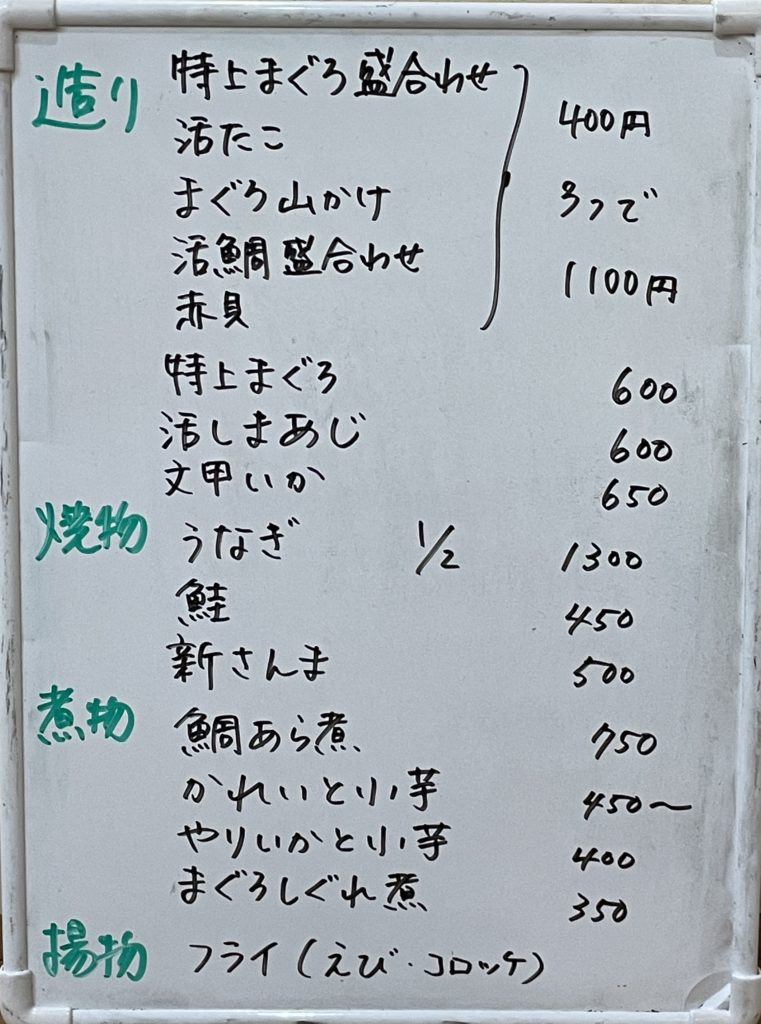 造り 特上まぐろ盛合わせ
活たこ 400円
まぐろ山かけ 3つで
活鯛盛合わせ 1100円
赤貝
特上まぐろ 600
活しまあじ 600
文甲いか 650
焼物 うなぎ 1/2 1300
鮭 450
新さんま 500
煮物 鯛あら煮 750
かれいと小芋 450〜
やりいかと小芋 400
まぐろしぐれ煮 350
揚物 フライ(えび・コロッケ)